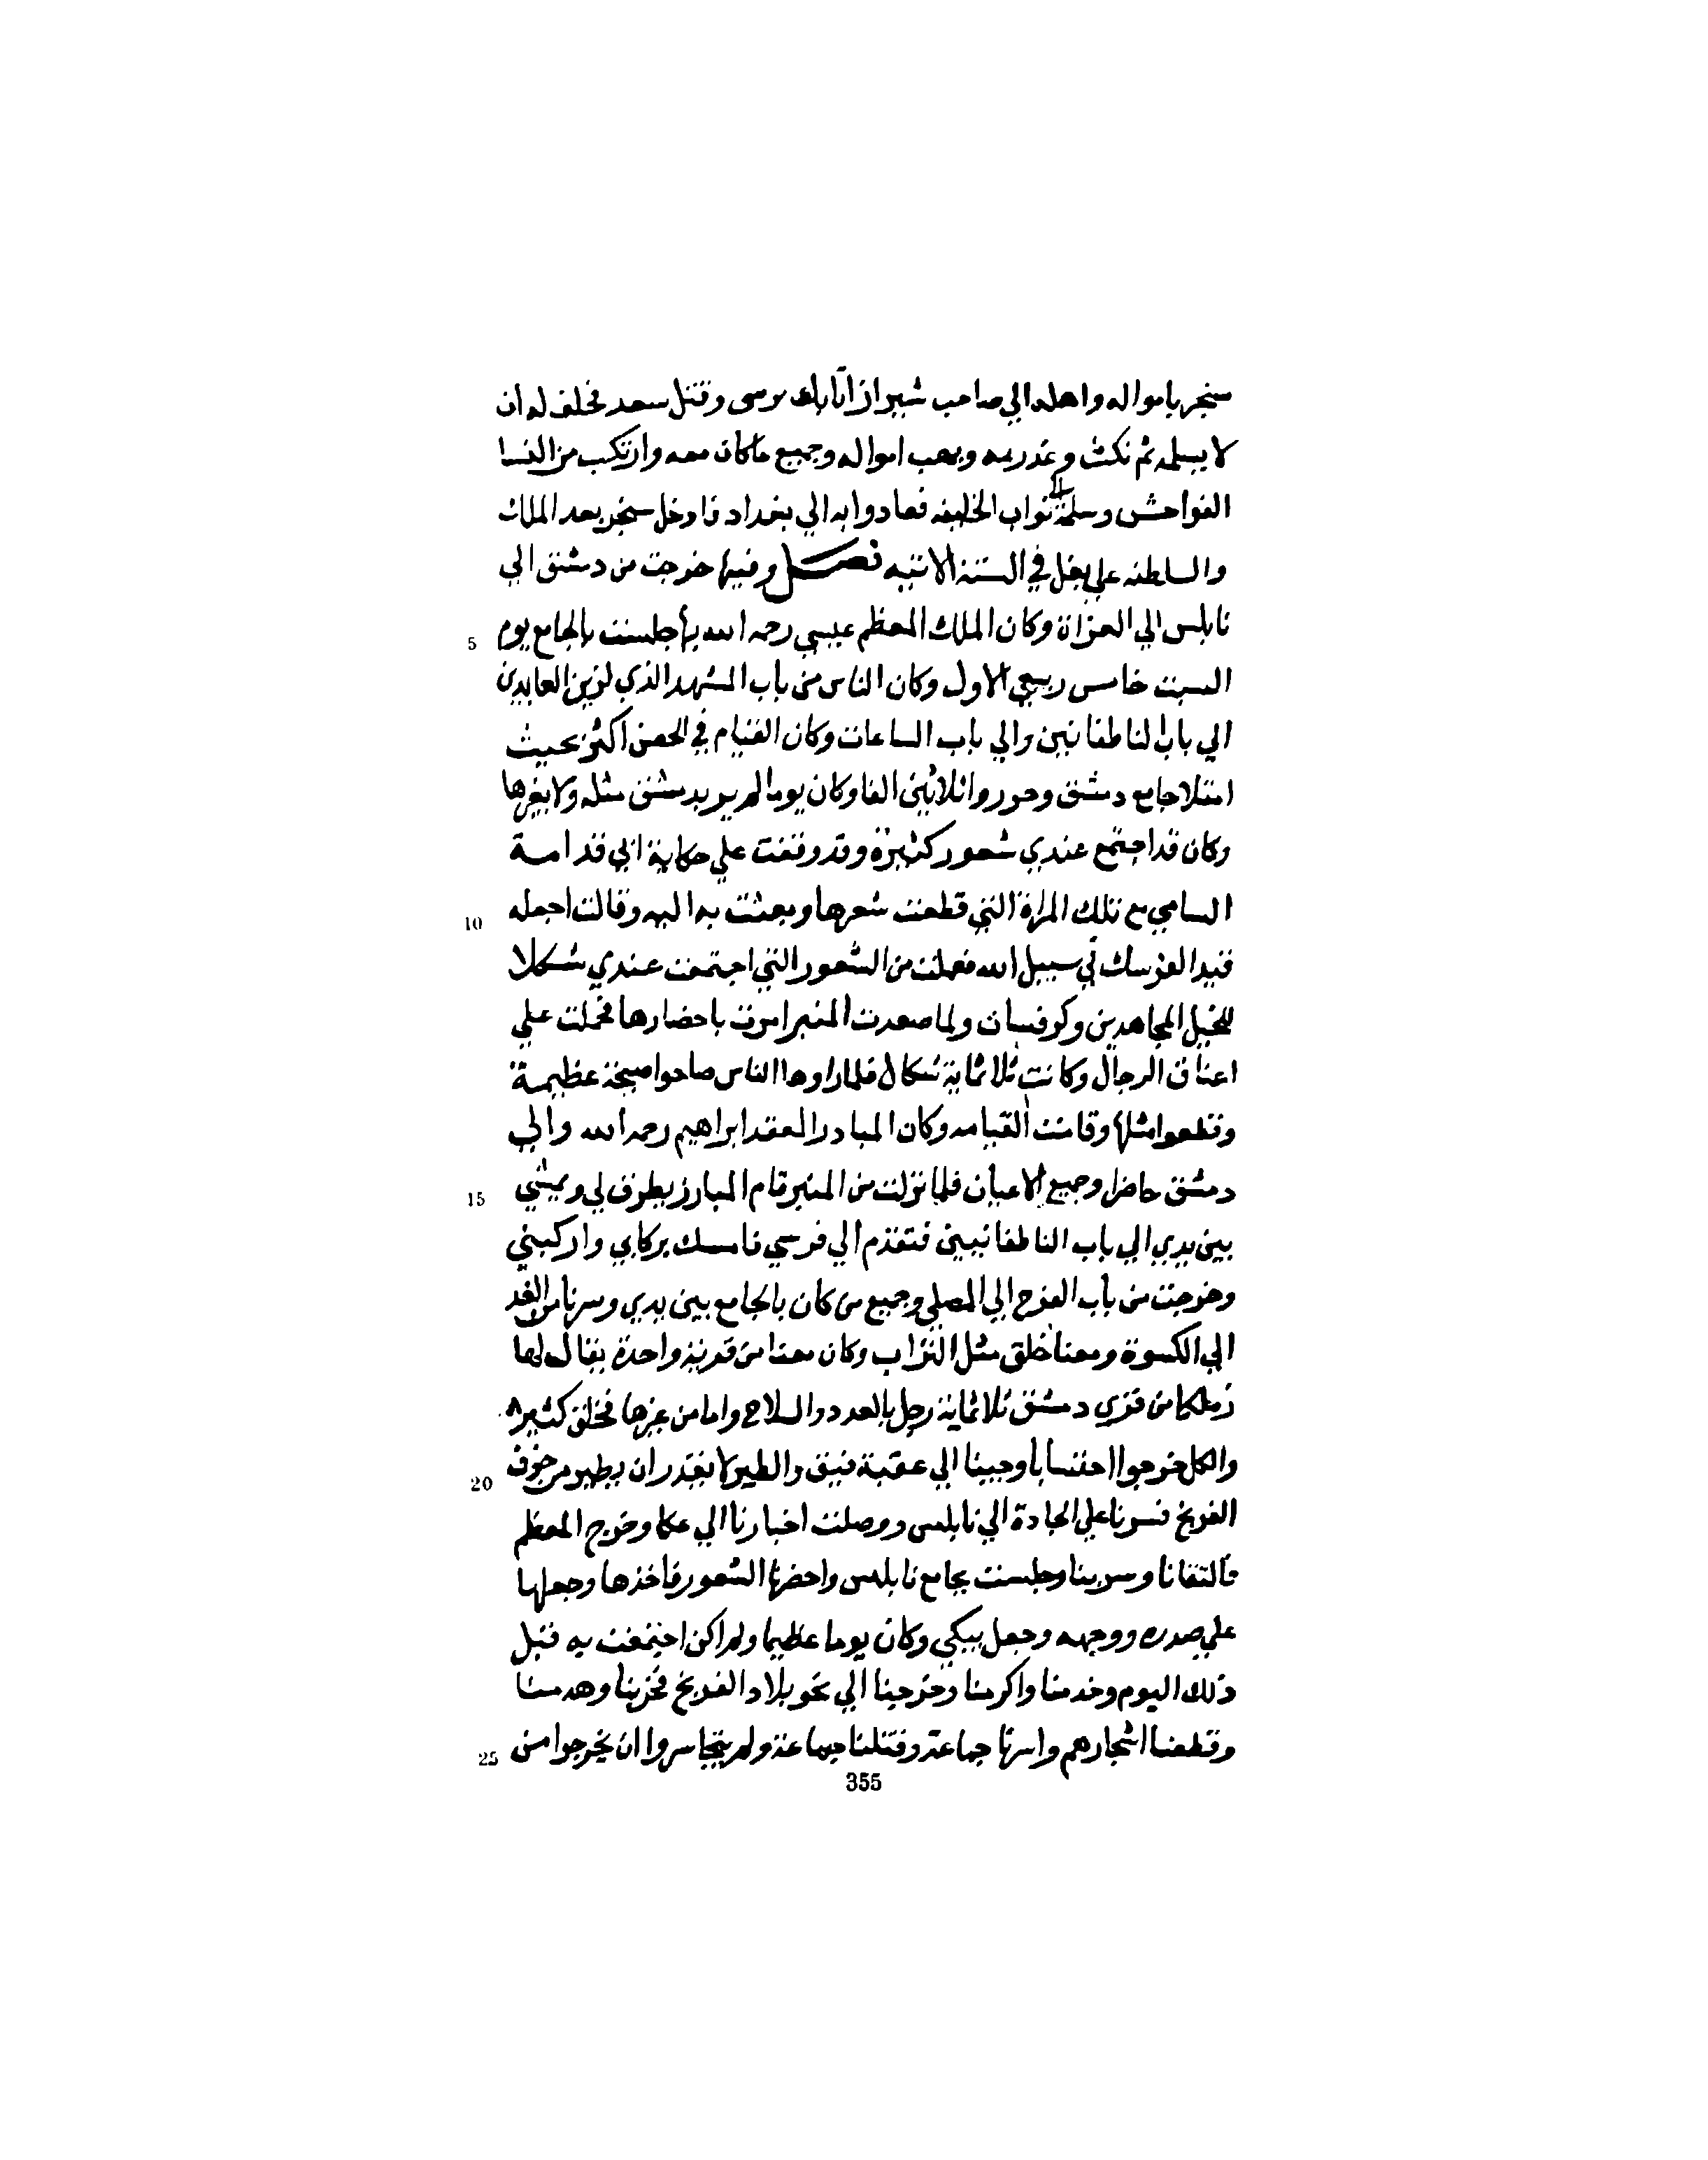 سنجر باموالہ واهله الي صاحب شيراز اتابك موسى وقتل سعد فحلف له ان
لا يسلمه ثم نكث وغدر به ونهب امواله وجميع ماكان معه وارتكب من النسا
الفواحش وسلمه الى نواب الخليفه فعادوا به الي بغداد فادخل سنجر بعد الملك
والسلطنه علي بغل في السنة الاتيه فصل وفيها خرجت من دمشق الي
5 نابلس الي الغزاة وكان الملك المعظم عيسي رحمه الله بها جلست بالجامع يوم
السبت خامس ربيع الاول وكان الناس من باب المشهد الذي لزين العابدين
الي باب الناطفانيين والي باب الساعات وكان القيام في الصحن اكثر بحيث
امتلا جامع دمشق وحزروا ثلاثين الفا وكان يوما لم ير بدمشق مثله ولا بغيرها
وكان قد اجتمع عندي شعور كثيرة وقد وقفت علي حكاية ابي قدامة
10 السامي مع تلك المراة التي قطعت شعرها وبعثت به اليه وقالت اجعله
قيدا لفرسك في سبيل الله فعملت من الشعور التي اجتمعت عندي شكلا
لخيل المجاهدين وكرفسات ولما صعدت المنبر امرت باحضارها فحملت علي
اعناق الرجال وكانت ثلاثماية شكال فلما راوها الناس صاحوا صيحة عظيمة
وقطعوا مثلها وقامت القيامه وكان المبادر المعتمد ابراهيم رحمه الله والي
دمشق حاضرا وجميع الاعيان فلما نزلت من المنبر قام المبارز يطرف لي ويمشي 15
بين يدي الي باب الناطفانيين فتقدم الي فرسي فامسك بركابي واركبني
وخرجت من باب الفرج الي المصلي وجميع من كان بالجامع بين يدي وسرنا من الغد
الي الكسوة ومعنا خلق مثل التراب وكان معنا من قرية واحدة يقال لها
زملكا من قري دمشق ثلاثماية رجل بالعدد والسلاح واما من غيرها فخلق كثير
والكل خرجوا احتسابا وجينا الي عقبة فيق والطير لا يقدر ان يطير من خوف 20
الفرنج فسرنا علي الجادة الي نابلس ووصلت اخبارنا الي عكا وخرج المعظم
فالتقانا وسر بنا وجلست بجامع نابلس واحضرنا الشعور فاخذها وجعلها
علي صدره ووجهه وجعل يبكي وكان يوما عظيما ولم اكن اجتمعت به قبل
ذلك اليوم وخدمنا واكرمنا وخرجنا الي نحو بلاد الفرنج فخربنا وهدمنا
وقطعنا اشجارهم واسرنا جماعة وقتلنا جماعة ولم يتجاسروا ان يخرجوا من 25
355